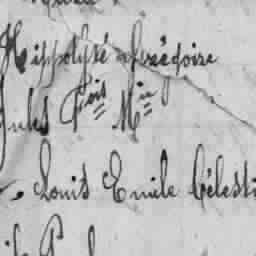 Hippolyte Grégoire
Jules Fois Mie
Louis Emile Célesti